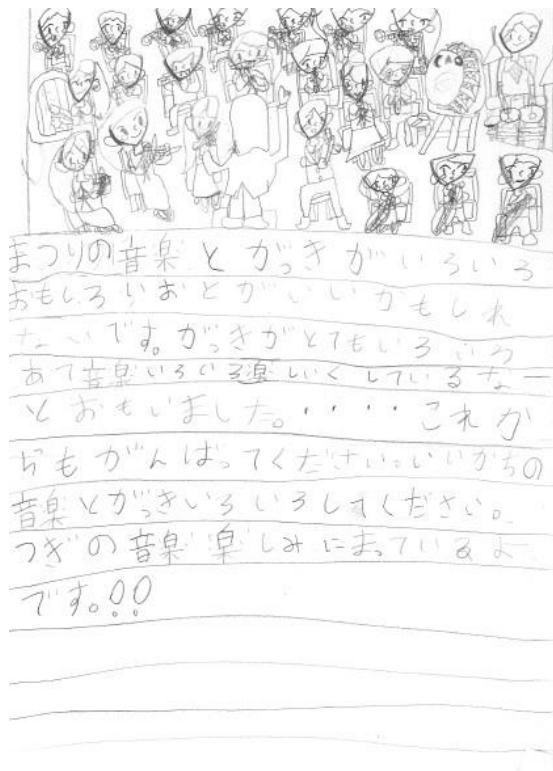 まつりの音楽とがっきがいろいろ
おもしろいおとがいいかもしれ
ないです。がっきがとてもいろいろ
あて音楽いろいろ楽しいくしているなー
とおもいました。・・・・これか
らもがんばってください。いいかちの
音楽とがっきいろいろしてください。
つぎの音楽楽しみにまっているよ
です。!!